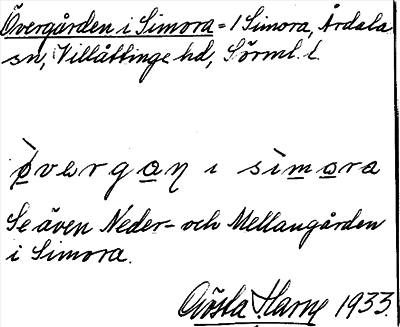 Övergården i Simora = 1 Simora, Årdala
sn, Villåttinge hd, Sörml. l.
ò̱verga̱ṉ ı sìmo̱ra
Se även Neder- och Mellangården
i Simora.
Gösta Harne 1933.